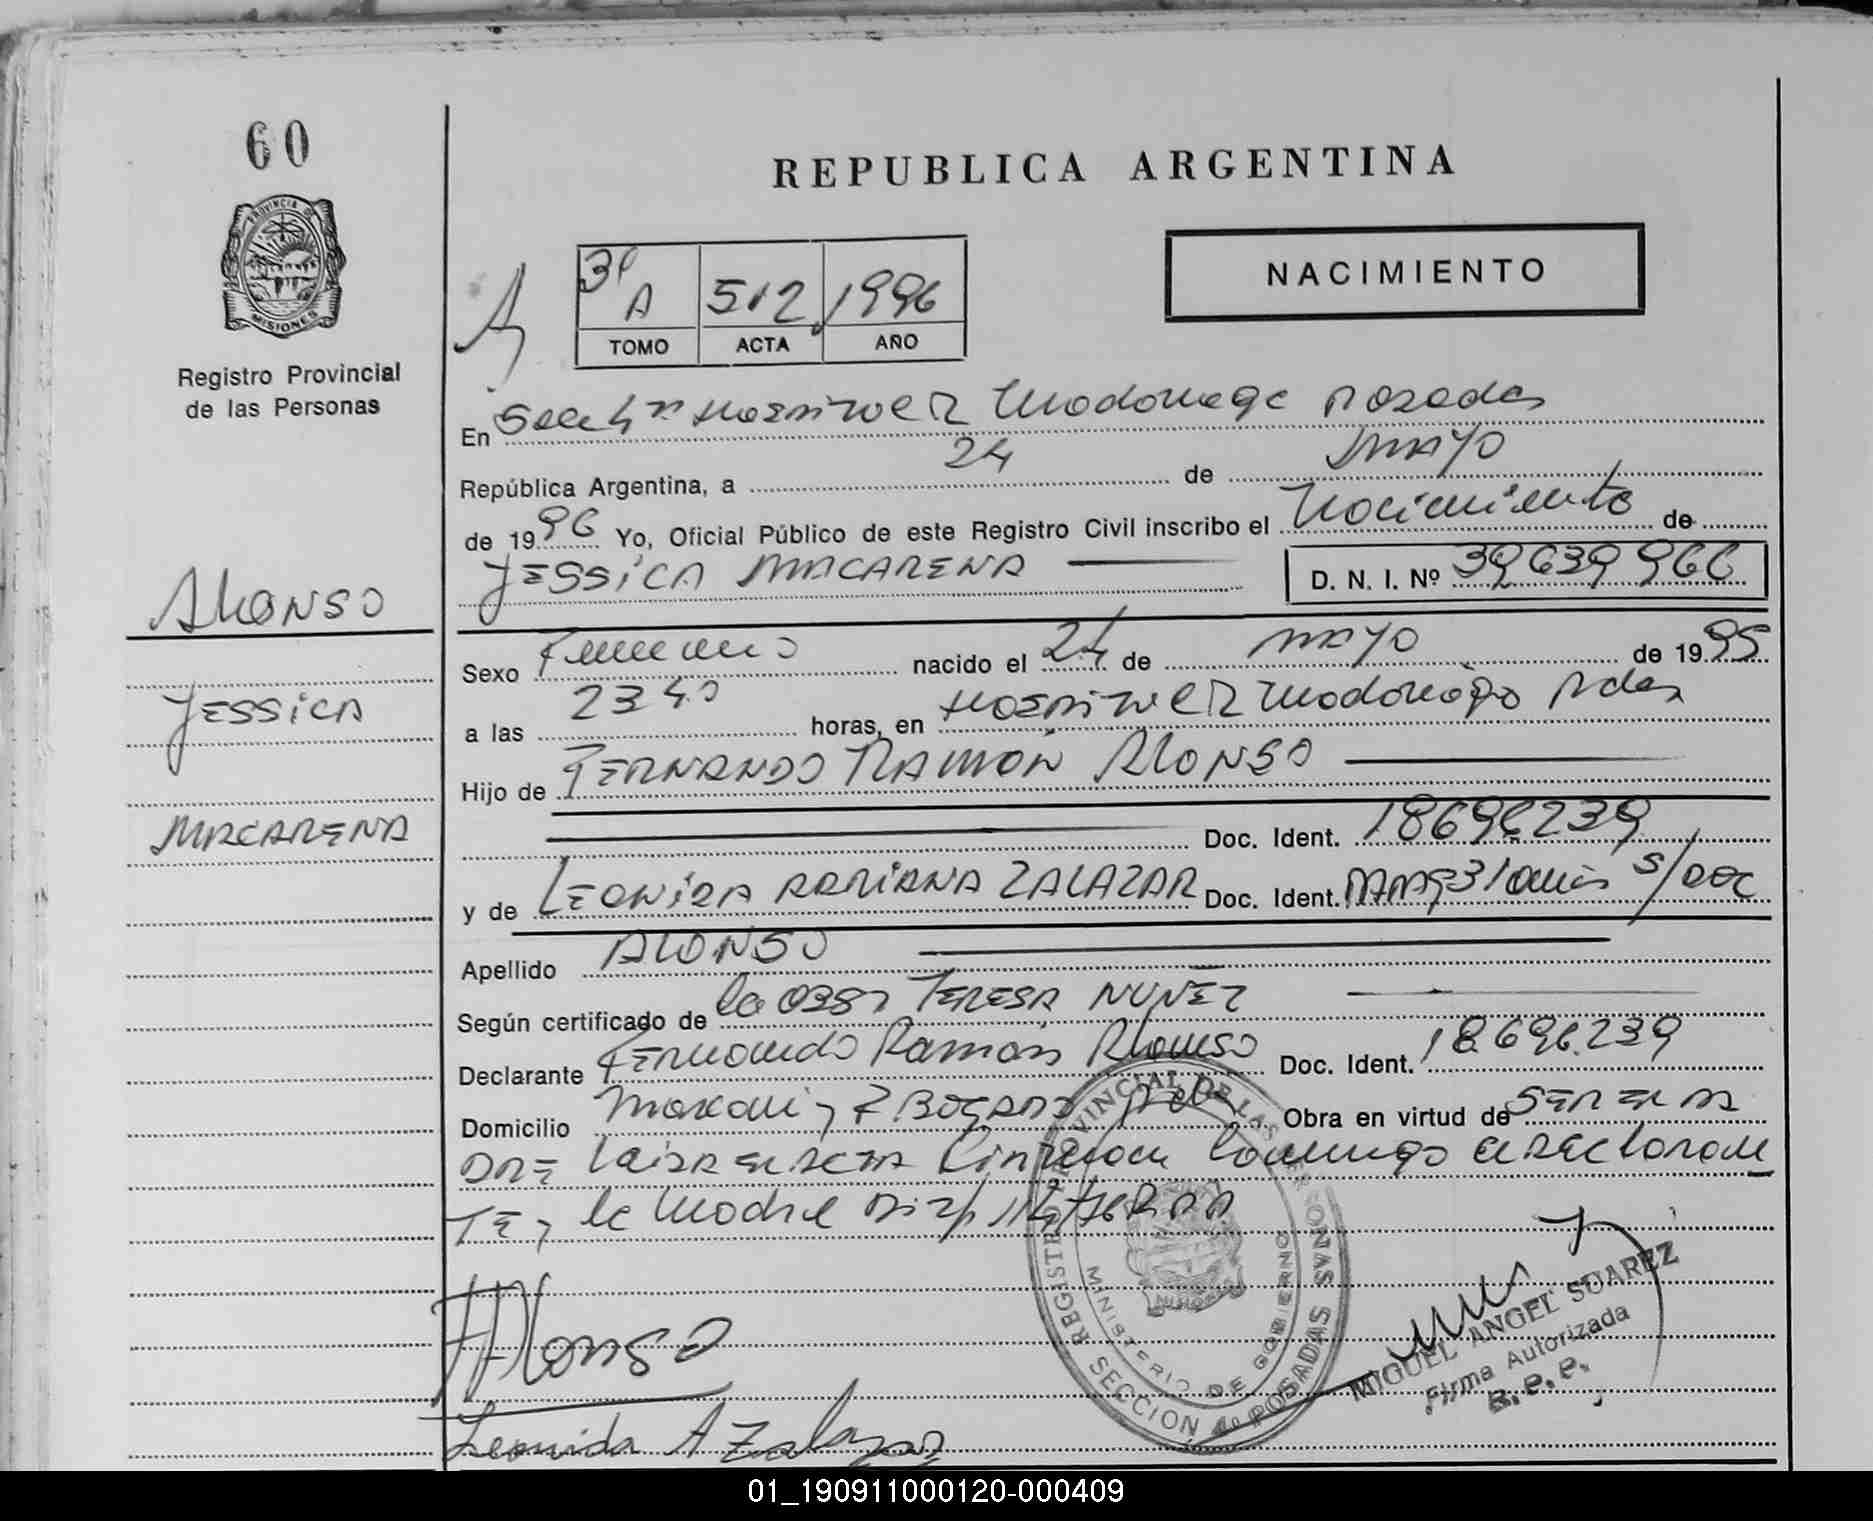 60
PROVINCIA DE
MISIONES
Registro Provincial
de las Personas
REPUBLICA ARGENTINA
NACIMIENTO
3º A 512 1996
TOMO ACTA AÑO
En Secc 4ª Hospital R Madariaga Posadas
República Argentina, a 24 de MAYO
de 1996 Yo, Oficial Público de este Registro Civil inscribo el Nacimiento de
JESSICA MACARENA D. N. I. Nº 39639966
ALONSO
JESSICA
MACARENA
Sexo Femenino nacido el 24 de MAYO de 1995
a las 2340 horas, en Hospital R Madariaga Pdas
Hijo de FERNANDO RAMON ALONSO
Doc. Ident. 18696239
y de LEONIDA ADRIANA ZALAZAR Doc. Ident. 31 años s/doc
Apellido ALONSO
Según certificado de la OBST TERESA NUÑEZ
Declarante Fernando Ramón Alonso Doc. Ident. 18.696.239
Domicilio Obra en virtud de SER EL PA
DRE
TE, la Madre
REGISTRO PROVINCIAL DE LAS PERSONAS
MINISTERIO DE GOBIERNO
MISIONES
SECCION 4ª POSADAS
MIGUEL ANGEL SUAREZ
Firma Autorizada
R. P. P.
FAlonso
Leonida A Zalazar
01_190911000120-000409